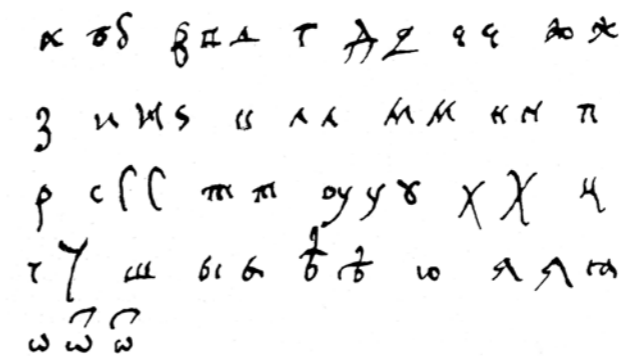 а б б в в д г д д е е ж ж
з и и ѕ її л л м м н н п
р с с с т т оу у ꙋ х х ц
ч ч ш ы ы ѣ ѣ ю я я ꙗ
ѡ ѿ ѿ